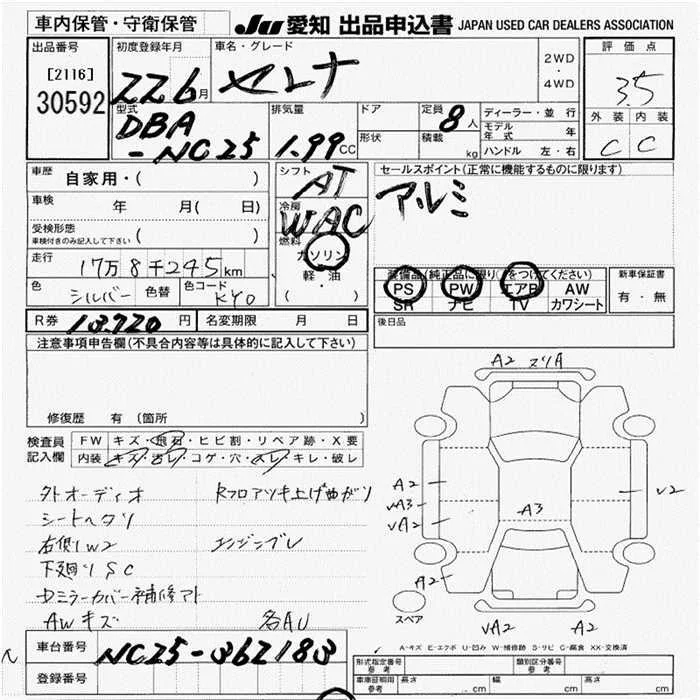 車内保管・守衛保管
JU 愛知 出品申込書 JAPAN USED CAR DEALERS ASSOCIATION
出品番号
[2116]
30592
初度登録年月
22 6月
車名・グレード
セレナ
2WD
・
4WD
評価点
3.5
外装 内装
C C
型式
DBA
-NC25
排気量
1.99 CC
ドア
形状
定員 8人
積載 kg
ディーラー・並行
モデル年式 年
ハンドル 左・右
車歴 自家用・( )
車検 年 月( 日)
受検形態
車検付きのみ記入して下さい ( )
走行 17万8千245km
色 シルバー 色替 色コード KY0
シフト AT
冷房 WAC
燃料
ガソリン
軽・油
( )
セールスポイント(正常に機能するものに限ります)
アルミ
装備品(純正品に限り○をつけてください)
PS PW エアB AW
SR ナビ TV カワシート
新車保証書
有・無
後日品
R券 13,720円 名変期限 月 日
注意事項申告欄(不具合内容等は具体的に記入して下さい)
修復歴 有(箇所 )
検査員記入欄
FW キズ・飛石・ヒビ割・リペア跡・X要
内装 キズ・汚レ・コゲ・穴・スレ・キレ・破レ
外オーディオ
シートヘタリ
右側1W2
下廻りSC
ドミラーカバー補修アト
AWキズ
Rフロアツキ上げ曲がり
エンジンブレ
各AU
A2 スリA
A2
A2
A3
V2
A2
スペア
VA2
A2
A-キズ E-エクボ U-凹み W-補修跡 S-サビ C-腐食 XX-交換済
車台番号 NC25-362183
登録番号
形式指定番号
参考
類別区分番号
参考
車庫証明用
参考
長さ cm
幅 cm
高さ cm